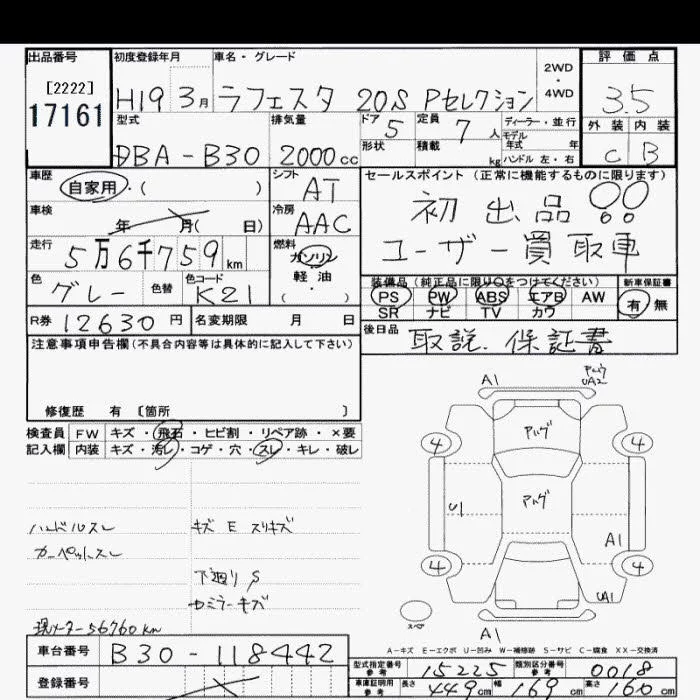 出品番号 初度登録年月 車名・グレード 2WD・4WD 評価点
[2222]
17161
H19 3月 ラフェスタ 20S Pセレクション 3.5
型式 排気量 ドア 5 定員 7 人 ディーラー・並行 外装 内装
モデル年式 年
DBA-B30 2000cc 形状 積載 kg ハンドル 左・右 C B
車歴 シフト セールスポイント (正常に機能するものに限ります)
自家用・( ) AT 初出品!!
車検 冷房
年 月( 日) AAC ユーザー買取車
走行 燃料
5万6千759km ガソリン
軽・油
( ・ )
色 色替 色コード 装備品(純正品に限り○をつけてください) 新車保証書
グレー K21 PS PW ABS エアB AW 有 無
SR ナビ TV カワ
R券 12630円 名変期限 月 日 後日品 取説. 保証書
注意事項申告欄(不具合内容等は具体的に記入して下さい)
修復歴 有 [箇所 ]
検査員 FW キズ・飛石・ヒビ割・リペア跡・×要
記入欄 内装 キズ・汚レ・コゲ・穴・スレ・キレ・破レ
A1 UA2
アルグ
4 4
アルグ
U1 A1
4 4
UA1
スペア
A1
ハンドルスレ キズ E スリキズ
カーペットスレ
下廻り S
ミラーキズ
現メーター56760km
A-キズ E-エクボ U-凹み W-補修跡 S-サビ C-腐食 XX-交換済
車台番号 B30-118442 型式指定番号 参考 15225 類別区分番号 参考 0018
登録番号 車庫証明用 参考 長さ 449cm 幅 169cm 高さ 160cm